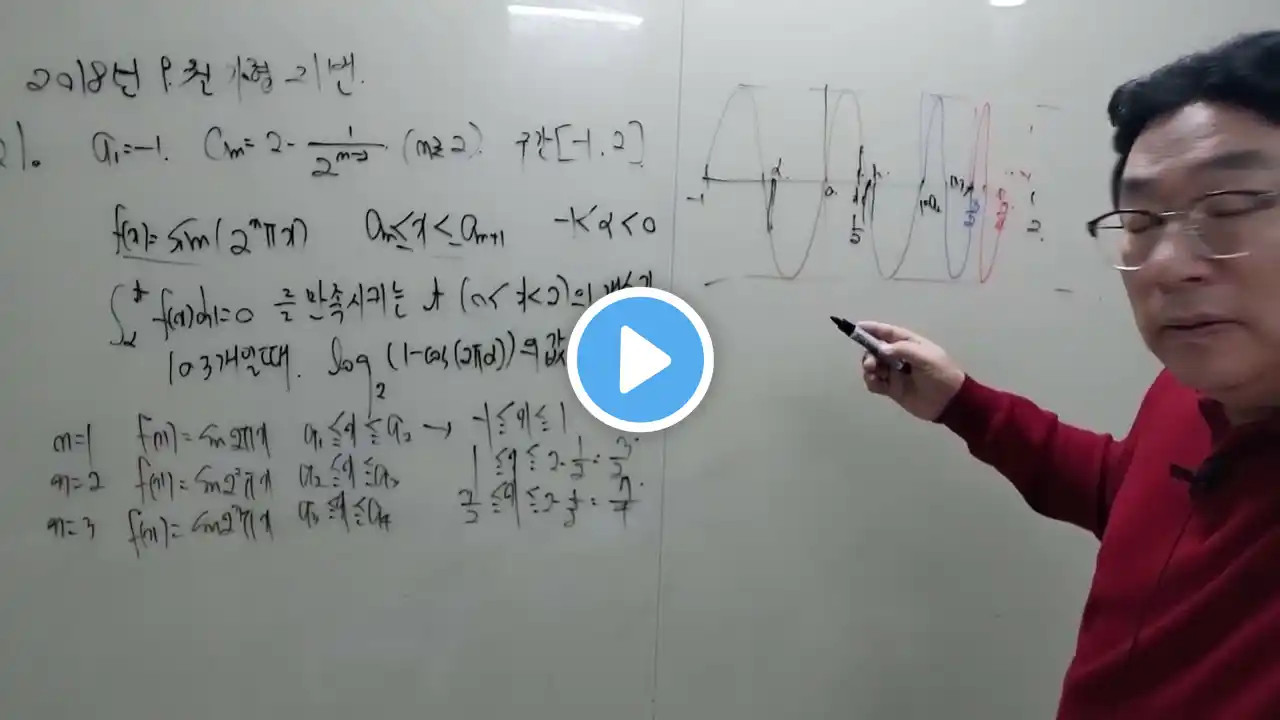 2018년 9월 가형 21번.
21. a₁=-1. aₙ = 2 - 1/2ⁿ⁻² (n≥2) 구간[-1, 2]
f(x)= sin(2ⁿπx) aₙ≤x≤aₙ₊₁ -1<α<0
∫ₐᵗ f(x)dx=0 을 만족시키는 t (0<t<2)의
103개일때. log₂(1-cos(2πα))의 값
n=1 f(x)= sin2πx a₁≤x≤a₂ → -1≤x≤1
n=2 f(x)= sin2²πx a₂≤x≤a₃ 1≤x≤2-1/2=3/2
n=3 f(x)= sin2³πx a₃≤x≤a₄
-1 α 0 2